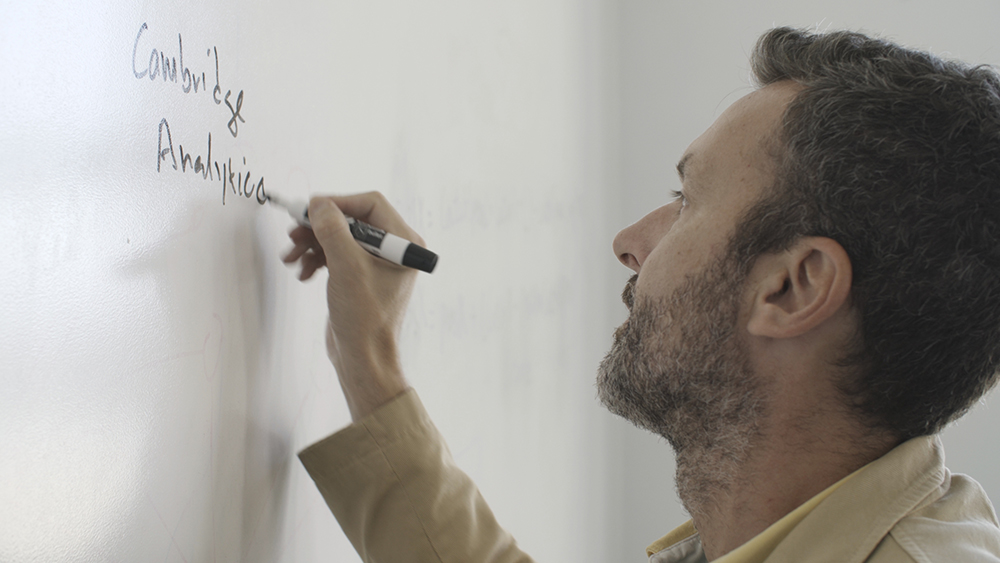 Cambridge
Analytica